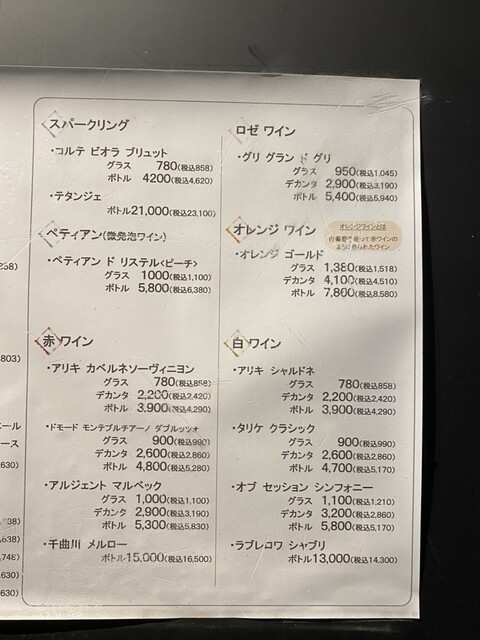 スパークリング
・コルテ ビオラ ブリュット
グラス 780(税込858)
ボトル 4200(税込4,620)
・テタンジェ
ボトル21,000(税込23,100)
ペティアン(微発泡ワイン)
・ペティアン ド リステル<ピーチ>
グラス 1000(税込1,100)
ボトル 5,800(税込6,380)
赤 ワイン
・アリキ カベルネソーヴィニヨン
グラス 780(税込858)
デカンタ 2,200(税込2,420)
ボトル 3,900(税込4,290)
・ドモード モンテプルチアーノ ダブルッツォ
グラス 900(税込990)
デカンタ 2,600(税込2,860)
ボトル 4,800(税込5,280)
・アルジェント マルベック
グラス 1,000(税込1,100)
デカンタ 2,900(税込3,190)
ボトル 5,300(税込5,830)
・千曲川 メルロー
ボトル15,000(税込16,500)
ロゼ ワイン
・グリ グラン ド グリ
グラス 950(税込1,045)
デカンタ 2,900(税込3,190)
ボトル 5,400(税込5,940)
オレンジ ワイン
オレンジワインとは
白葡萄を使って赤ワインの
ように作られたワイン
・オレンジ ゴールド
グラス 1,380(税込1,518)
デカンタ 4,100(税込4,510)
ボトル 7,800(税込8,580)
白 ワイン
・アリキ シャルドネ
グラス 780(税込858)
デカンタ 2,200(税込2,420)
ボトル 3,900(税込4,290)
・タリケ クラシック
グラス 900(税込990)
デカンタ 2,600(税込2,860)
ボトル 4,700(税込5,170)
・オブ セッション シンフォニー
グラス 1,100(税込1,210)
デカンタ 3,200(税込2,860)
ボトル 5,800(税込5,170)
・ラブレコワ シャブリ
ボトル13,000(税込14,300)